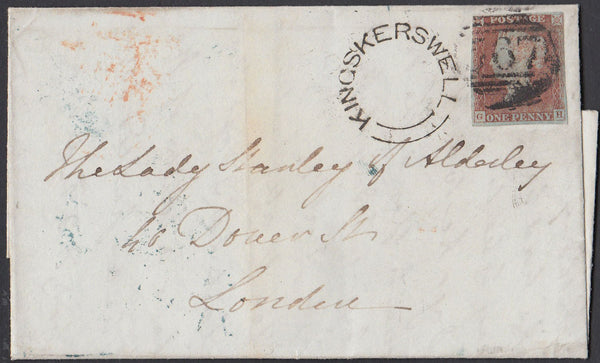 KINGSKERSWELL
POSTAGE
67
ONE PENNY
G H
The Lady Stanley of Alderley
40 Dover St
London